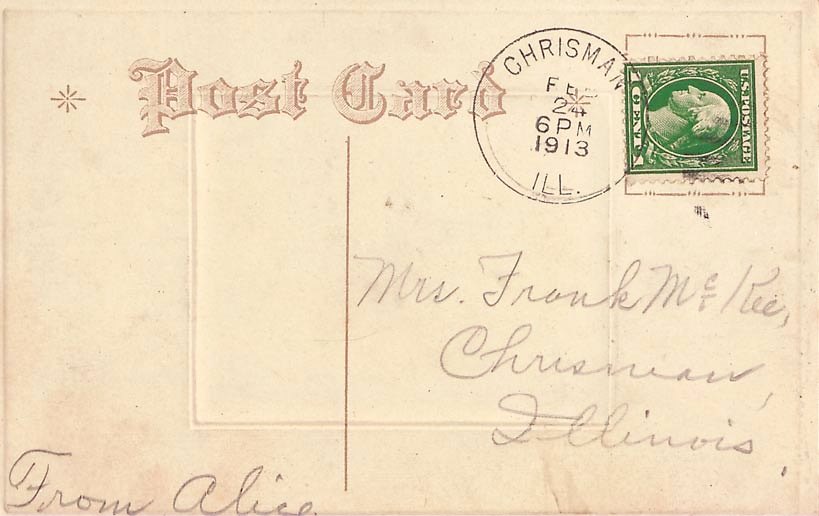 Post Card
CHRISMAN
FEB
24
6 PM
1913
ILL.
U.S. POSTAGE
1 CENT 1
Mrs. Frank McKee,
Chrisman,
Illinois.
From Alice